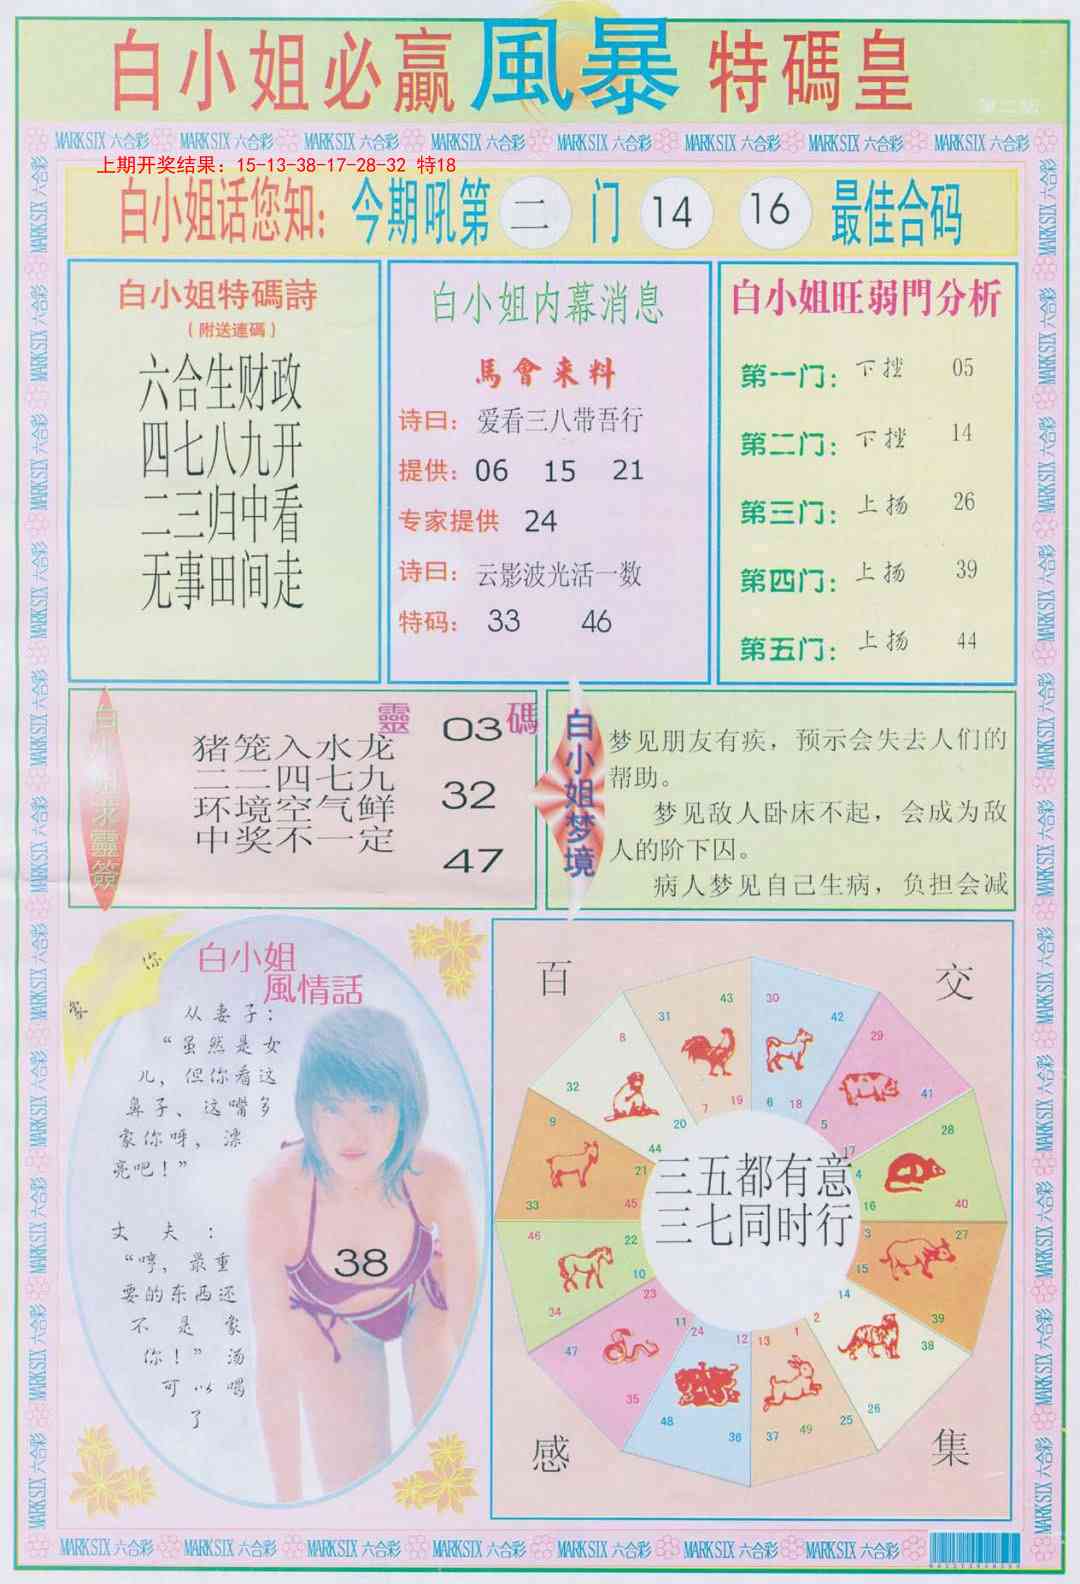 白小姐必贏風暴特碼皇
MARK SIX 六合彩 MARK SIX 六合彩 MARK SIX 六合彩 MARK SIX 六合彩 MARK SIX 六合彩 MARK SIX 六合彩 MARK SIX 六合彩 MARK SIX 六合彩
上期开奖结果：15-13-38-17-28-32 特18
白小姐话您知：今期吼第 二 门 14 16 最佳合码
白小姐特碼詩
（附送連碼）
六合生财政
四七八九开
二三归中看
无事田间走
白小姐内幕消息
馬會来料
诗曰：爱看三八带吾行
提供：06 15 21
专家提供 24
诗曰：云影波光活一数
特码：33 46
白小姐旺弱門分析
第一门：下挫 05
第二门：下挫 14
第三门：上扬 26
第四门：上扬 39
第五门：上扬 44
白小姐求靈簽
猪笼入水龙
二二四七九
环境空气鲜
中奖不一定
靈碼
03
32
47
白小姐梦境
梦见朋友有疾，预示会失去人们的
帮助。
梦见敌人卧床不起，会成为敌
人的阶下囚。
病人梦见自己生病，负担会减
白小姐
風情話
你
从妻子：
“虽然是女
儿，但你看这
鼻子、这嘴多
象你呀，漂
亮吧！”
丈夫：
“哼，最重
要的东西还
不是象
你！”汤
可以喝
了
38
百
交
感
集
三五都有意
三七同时行
43 31 19 7
30 42 6 18
29 41 5 17
28 40 4 16
27 39 3 15
14 2 38 26
13 1 37 49 25
24 12 48 36
23 11 47 35
46 22 10 34
9 21 33 45
8 32 20 44
MARK SIX 六合彩 MARK SIX 六合彩 MARK SIX 六合彩 MARK SIX 六合彩 MARK SIX 六合彩 MARK SIX 六合彩 MARK SIX 六合彩